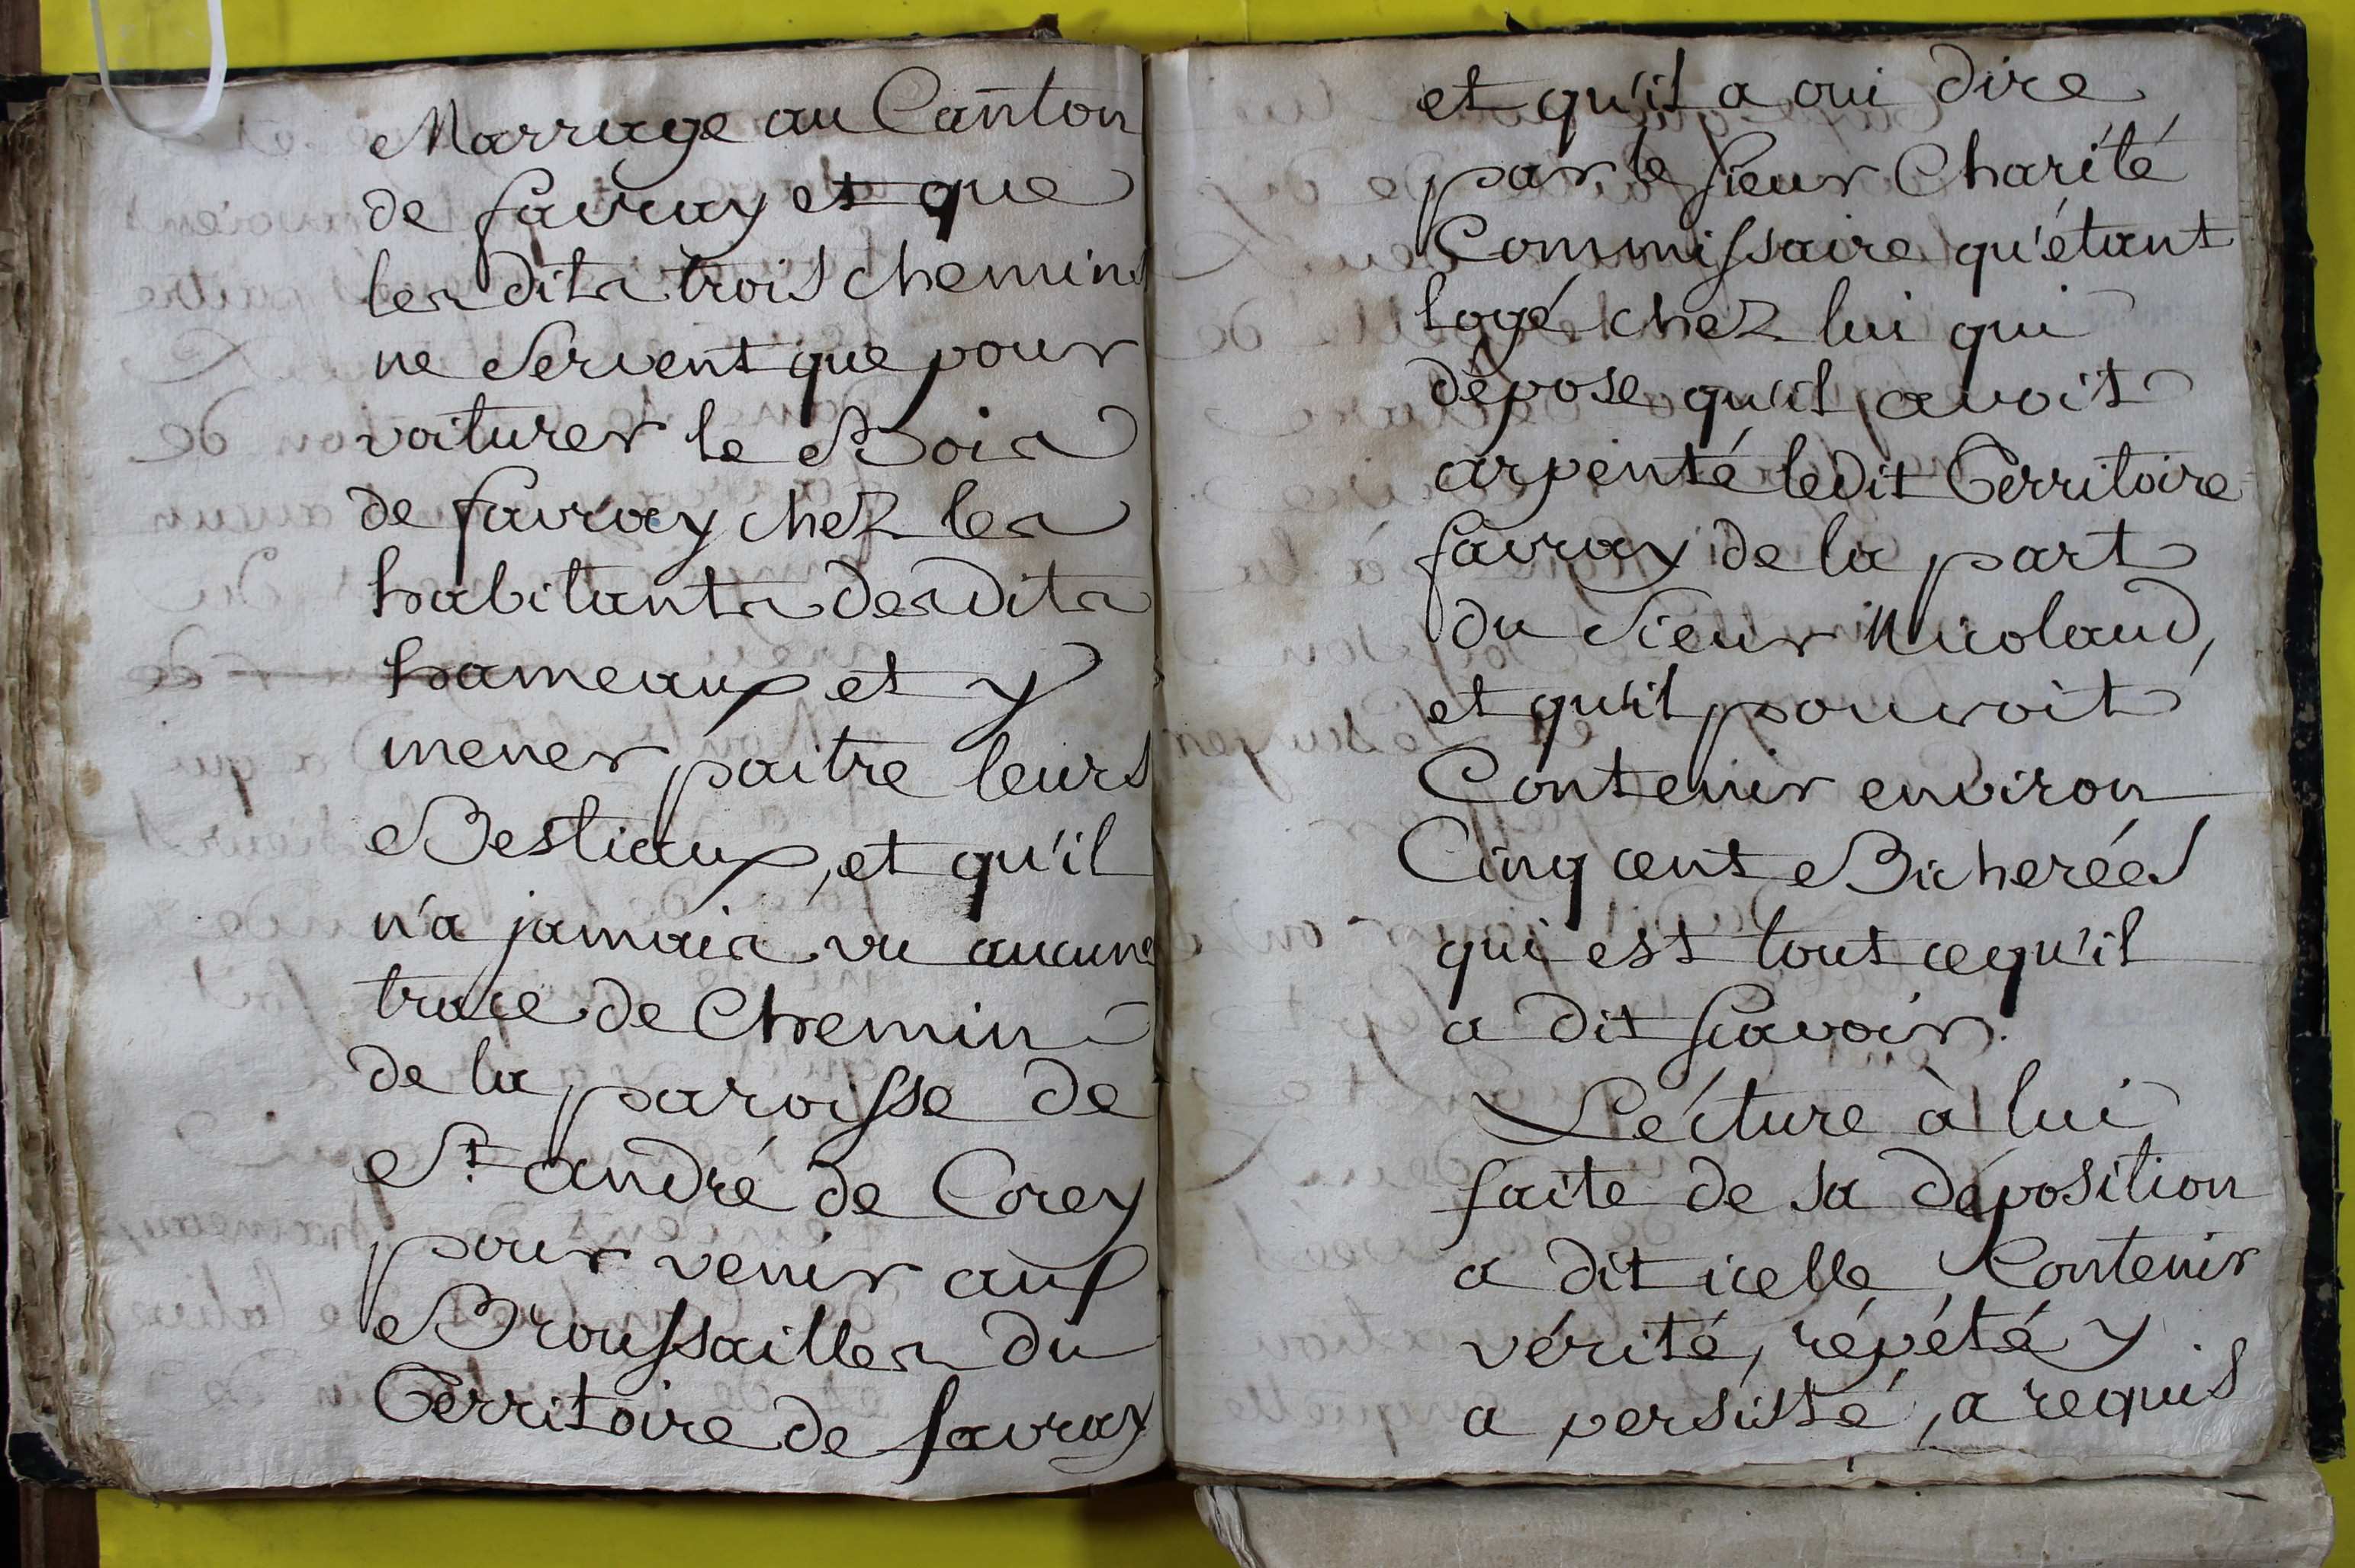 Marriage au Canton
de favray et que
les dits trois chemins
ne servent que pour
voiturer le Bois
de favray chez les
habitants desdits
hameaux et y
mener paitre leurs
Bestiaux, et qu'il
n'a jamais vu aucune
trace de Chemin
de la paroisse de
St. andré de Corcy
pour venir aux
Broussailles du
Territoire de favray
et qu'il a oui dire
par le sieur Charité
Commissaire qu'étant
logé chez lui qui
dépose qu'il avoit
arpenté ledit Territoire
favray de la part
du sieur Nicolaud,
et qu'il pouvoit
Contenir environ
Cinq cent Bicherées
qui est tout cequ'il
a dit scavoir.
Lecture à lui
faite de sa déposition
a dit icelle Contenir
vérité, répété y
a persisté, a requis